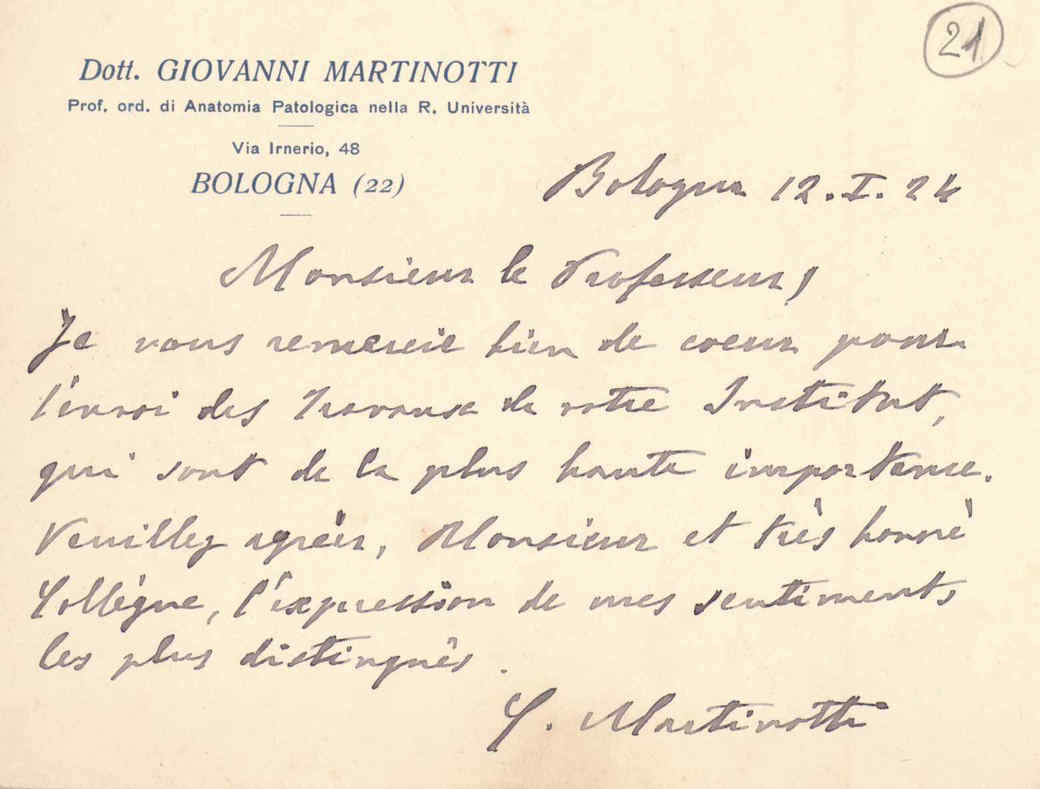 21
Dott. GIOVANNI MARTINOTTI
Prof. ord. di Anatomia Patologica nella R. Università
Via Irnerio, 48
BOLOGNA (22)
Bologna 12.I.24
Monsieur le Professeur,
Je vous remercie bien de coeur pour
l'envoi des Travaux de votre Institut,
qui sont de la plus haute importance.
Veuillez agréer, Monsieur et très honoré
Collègue, l'expression de mes sentiments
les plus distingués.
G. Martinotti